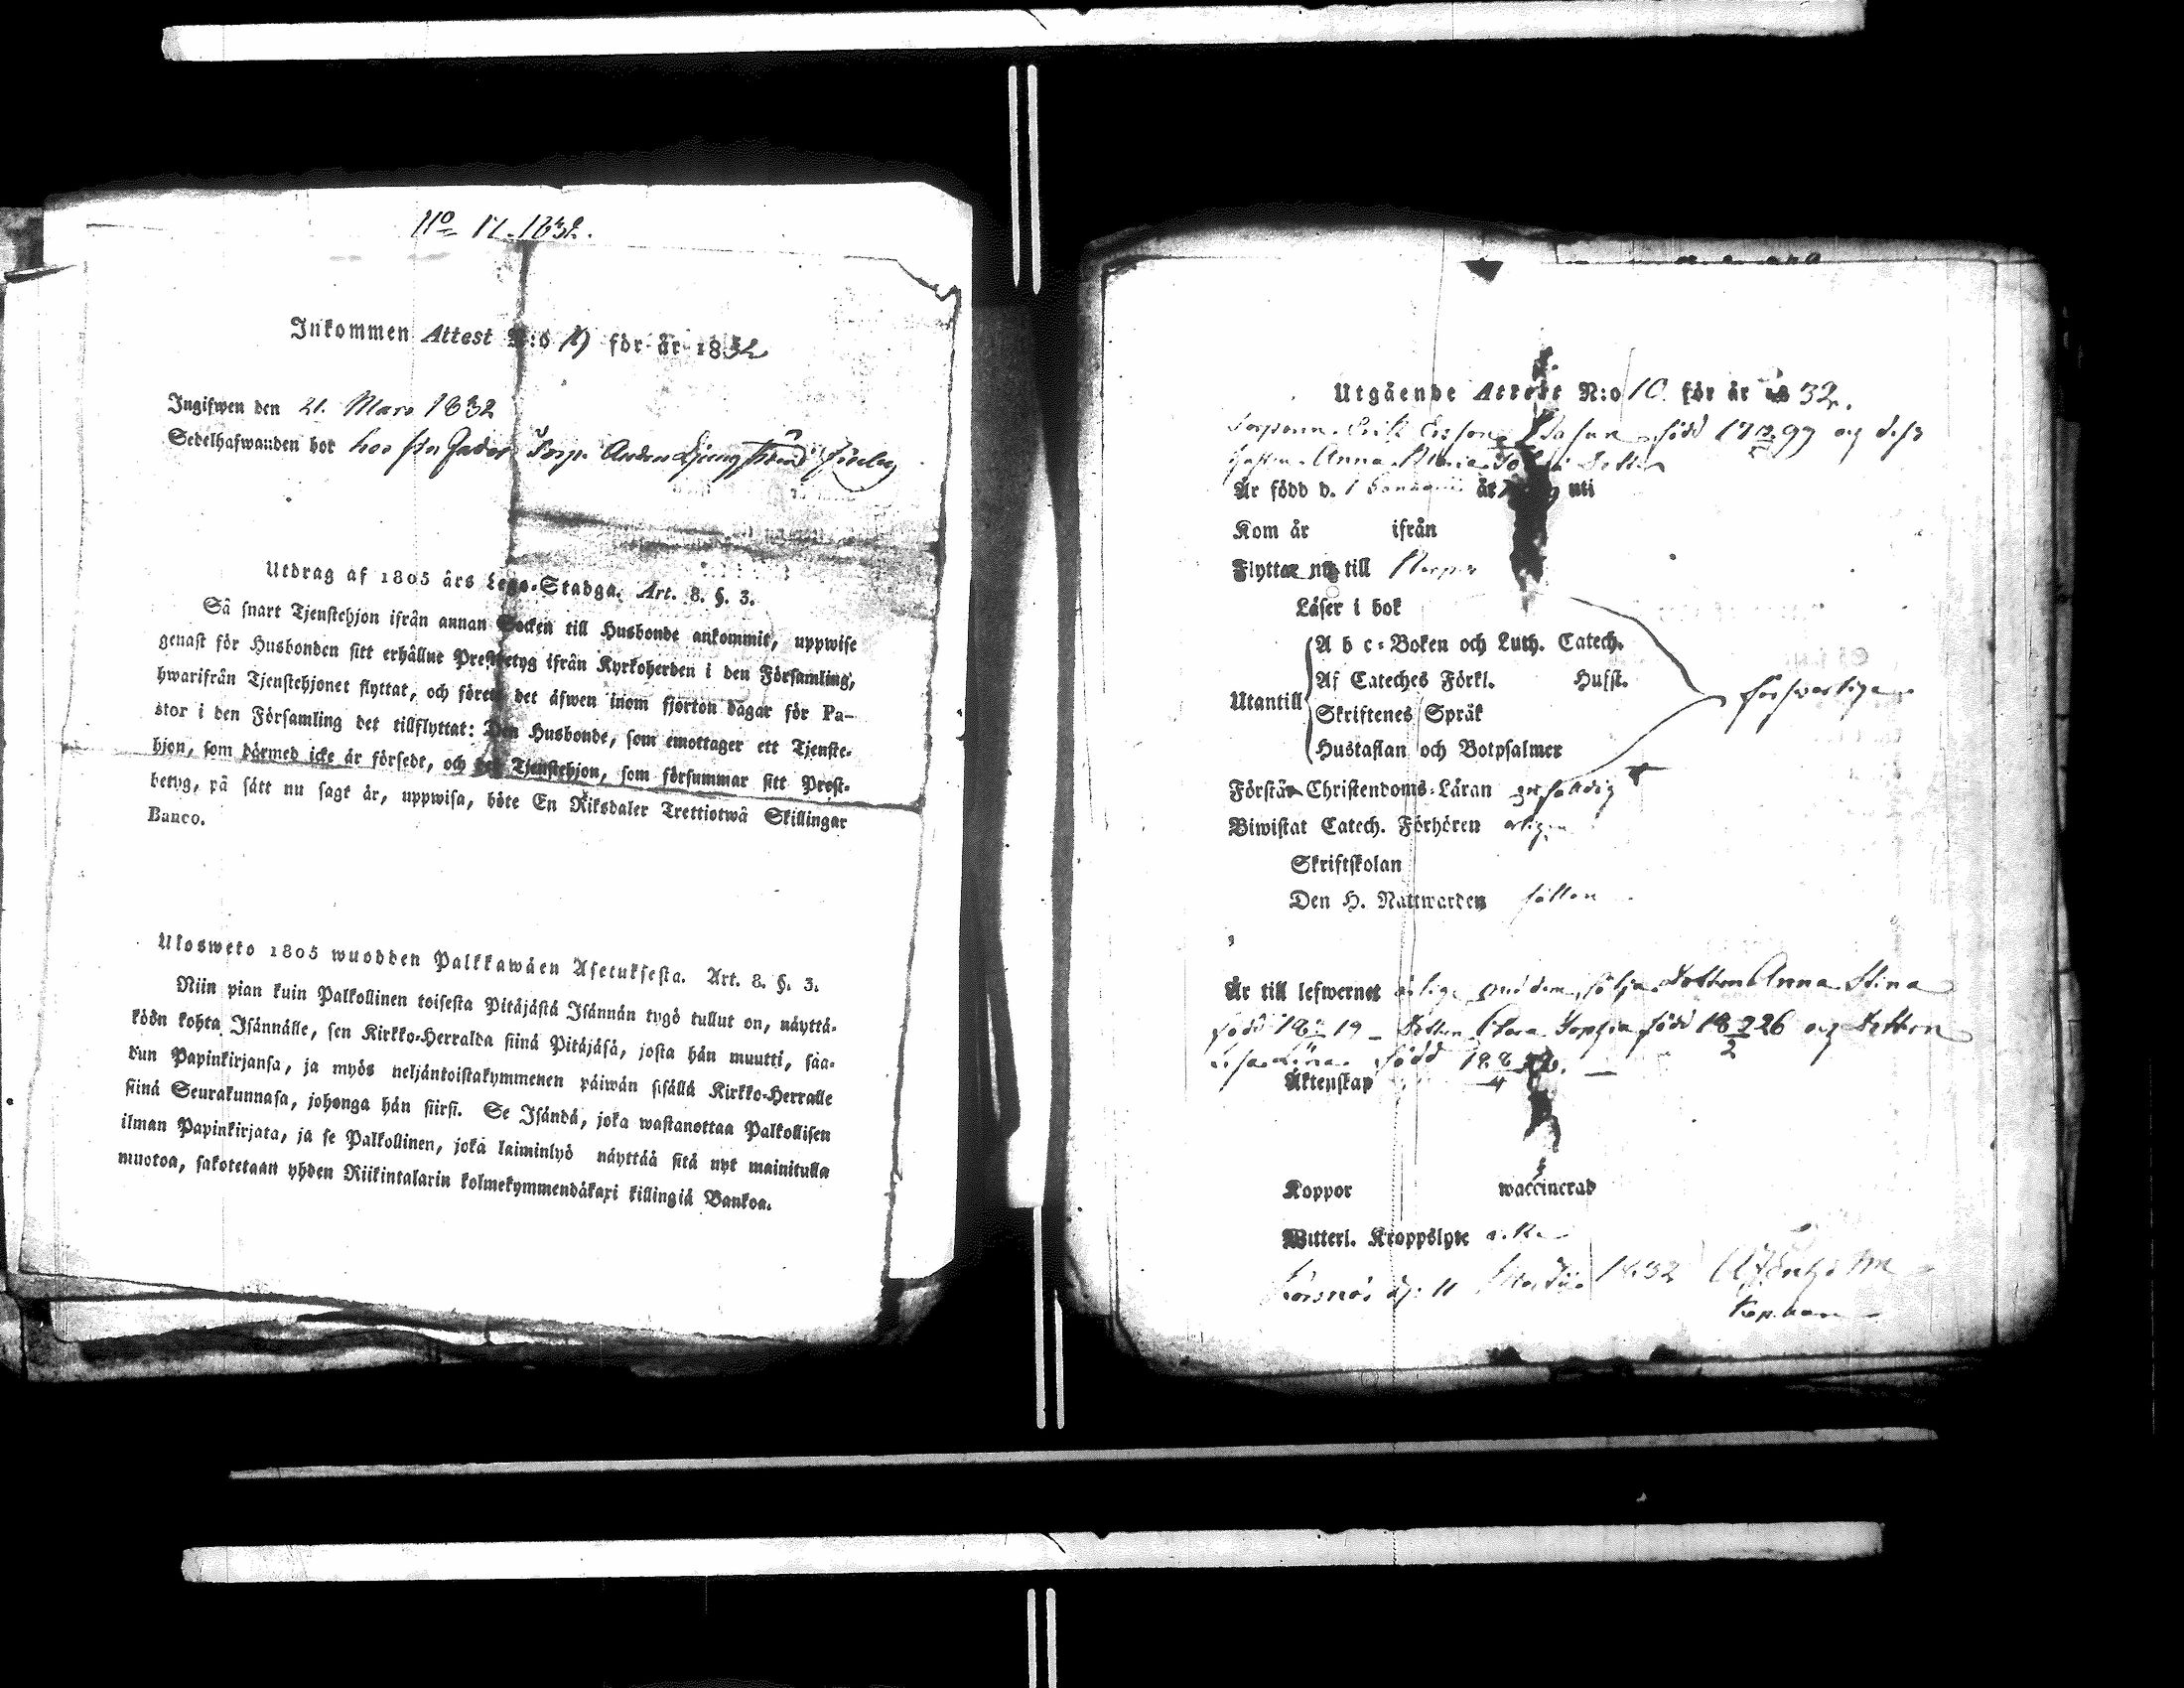 No 17. 1832.
Inkommen Attest N:o 17 för år 1832
Ingifwen den 21. Mars 1832
Sedelhafwanden bor hos sin Fader Torp. Anders
Utdrag af 1805 års Lego-Stadga. Art. 8. §. 3.
Så snart Tjenstehjon ifrån annan Socken till Husbonde ankommit, uppwise
genast för Husbonden sitt erhållne Prestbetyg ifrån Kyrkoherden i den Församling,
hwarifrån Tjenstehjonet flyttat, och förete det äfwen inom fjorton dagar för Pa-
stor i den Församling det tillflyttat: Den Husbonde, som emottager ett Tjenste-
hjon, som därmed icke är försedt, och det Tjenstehjon, som försummar sitt Prest-
betyg, på sätt nu sagt är, uppwisa, böte En Riksdaler Trettiotwå Skillingar
Banco.
Ulosweto 1805 wuodden Palkkawäen Asetuksesta. Art. 8. §. 3.
Niin pian kuin Palkollinen toisesta Pitäjästä Isännän tygö tullut on, näyttä-
köön kohta Isännälle, sen Kirkko-Herralda siinä Pitäjäsä, josta hän muutti, saa-
dun Papinkirjansa, ja myös neljäntoistakymmenen päiwän sisällä Kirkko-Herralle
siinä Seurakunnasa, johonga hän siirsi. Se Isändä, joka wastanottaa Palkollisen
ilman Papinkirjata, ja se Palkollinen, joka laiminlyö näyttää sitä nyt mainitulla
muotoa, sakotetaan yhden Riikintalarin kolmekymmendäkaxi killingiä Bankoa.
Utgående Attest N:o 10 för år 1832.
Torparen Erik Ersson född 17 97 och dess
hustru Anna Maria
Är född d. 1 år uti
Kom år ifrån
Flyttar nu till
Läser i bok
A b c-Boken och Luth. Catech.
Af Cateches Förkl. Hufst.
Utantill
Skriftenes Språk
Hustaflan och Botpsalmer
försvarligen
Förstår Christendoms-Läran enfaldigt
Biwistat Catech. Förhören årligen
Skriftskolan
Den H. Nattwarden sällan
Är till lefwernet ärlige med dem följa Dottren Anna Stina
född 18 19 Dottren Clara Sophia född 18 2/2 26 och Dottren
Lisa född 18 8/4
Äktenskap
Koppor waccinerad
Witterl. Kroppslyte icke
d. 11 Martii 1832
Kaplan